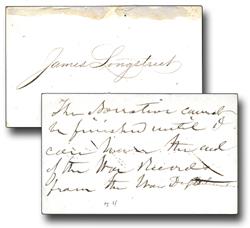 James Longstreet
The Narrative cannot
be finished until I
can have the aid
of the War Records
from the War